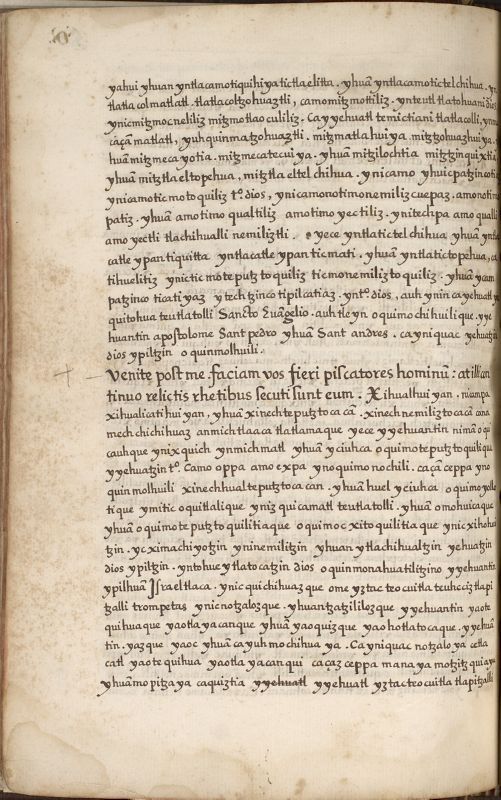 yahui yhuan yntlacamotiquihiyatictlaelitta. yhuā yntlacamotictelchihua. yn
tlatlacolmatlatl. tlatlacoltzohuaztli, camomitzmottiliz. ynteutl tlatohuani dios
ynicmitzmocneliliz mitzmotlaoculiliz. Ca yyehuatl temictiani tlatlacolli, yn
caçā matlatl, yuhquinmatzohuaztli. mitzmatlahuiya. mitztzohuazhuiya. y
huā mitzmecayotia. mitzmecatecuiya. yhuā mitzilochtia mitztzinquixtia
yhuā mitztlaeltopehua, mitztlaeltelchihua. ynicamo yhuicpatzinco ti
ynicamoticmotoquiliz tº. dios, ynicamonotimonemilizcuepaz. amonotimo
patiz. yhuā amotimoqualtiliz amotimoyectiliz. ynitechpa amo qualli
amo yectli tlachihualli nemiliztli. yece yntlatictelchihua yhuā yntla
catle ypan tiquitta yntlacatle ypan ticmati. yhuā yntlatictopehua, ca
tihuelitiz ynicticmoteputztoquiliz ticmonemiliztoquiliz. yhuā ycam
patzinco ticatiyaz ytechtzinco tipilcatiaz. yntº. dios, auh ynin ca yehuatl y
quitohua teutlatolli Sancto Euāgelio. auh tleyn oquimochihuilique. yye
huantin apostolome Sant pedro yhuā Sant andres. ca yniquac yehuatzin
dios ypiltzin oquinmolhuili.
Venite post me. faciam vos fieri piscatores hominū: at illi con
tinuo relictis rhetibus secuti sunt eum. Xihualhuiyan. nicanpa
xihualicatihuiyan, yhuā xinechteputztocacā. xinechnemiliztocacā cana
mechchichihuaz anmichtlaaca tlatlamaque yece yyehuantin niman oqui
cauhque ynixquich ynmichmatl yhuā yciuhca oquimoteputztoquiliqui
yyehuatzin tº. Camo oppa amo expa ynoquimonochili. caçan ceppa yno
quinmolhuili xinechhualteputztocacan. yhuā huel yciuhca oquimoyollo
tique ymitic oquitlalique yn izquicamatl teutlatolli. yhuā omohuicaque
yhuā oquimoteputztoquilitiaque oquimocxitoquilitiaque ynicxihohua
tzin. ycximachiyotzin yninemilitzin yhuan ytlachihualtzin yehuatzin
dios ypiltzin. yntohueytlatocatzin dios oquinmonahuatilitzino yyehuantin
ypilhuā Israel tlaca. ynic quichihuazque ome yztac teocuitla teuhccizttlapi
tzalli trompetas ynic notzalozque. yhuan tzatzililozque yyehuantin yaote
quihuaque yaotlayacanque yhuā yaoquizque yaohotlatocaque. yyehuā
tin. yazque yaoc yhuā ca yuh mochihuaya. Ca yniquac notzaloya cetla
catl yaotequihua yaotlayacanqui caçā ceppa manaya motzitzquiaya
yhuā mopitzaya caquiztia yyehuatl yyehuatl yztac teocuitla tlapitzalli